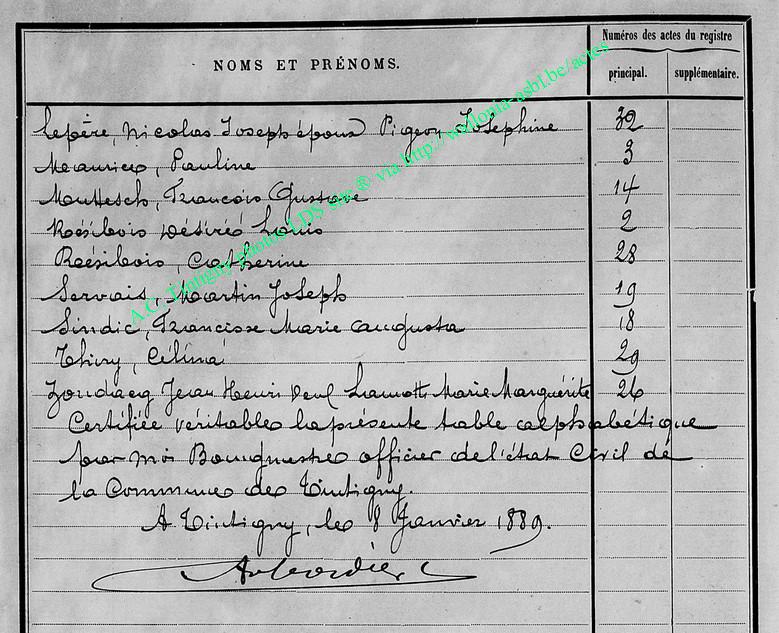 NOMS ET PRÉNOMS.
Numéros des actes du registre
principal. supplémentaire.
Lepère, Nicolas Joseph époux Pigeon Josephine 32
Maurice, Pauline 3
Muttesch, Francois Gustave 14
Résibois Désiré Louis 2
Résibois, Catherine 28
Servais, Martin Joseph 19
Sindic, Francisse Marie Augusta 18
Thiry, Célina 29
Jean Henri Veuf Lamotte Marie Marguérite 26
Certifiée véritable la présente table alphabétique
par moi Bourgmestre officier de l'état Civil de
la Commune de Tintigny.
A Tintigny, le 8 Janvier 1889.
A.C. Tintigny photos LDS site ® via http://wallonia-asbl.be/actes